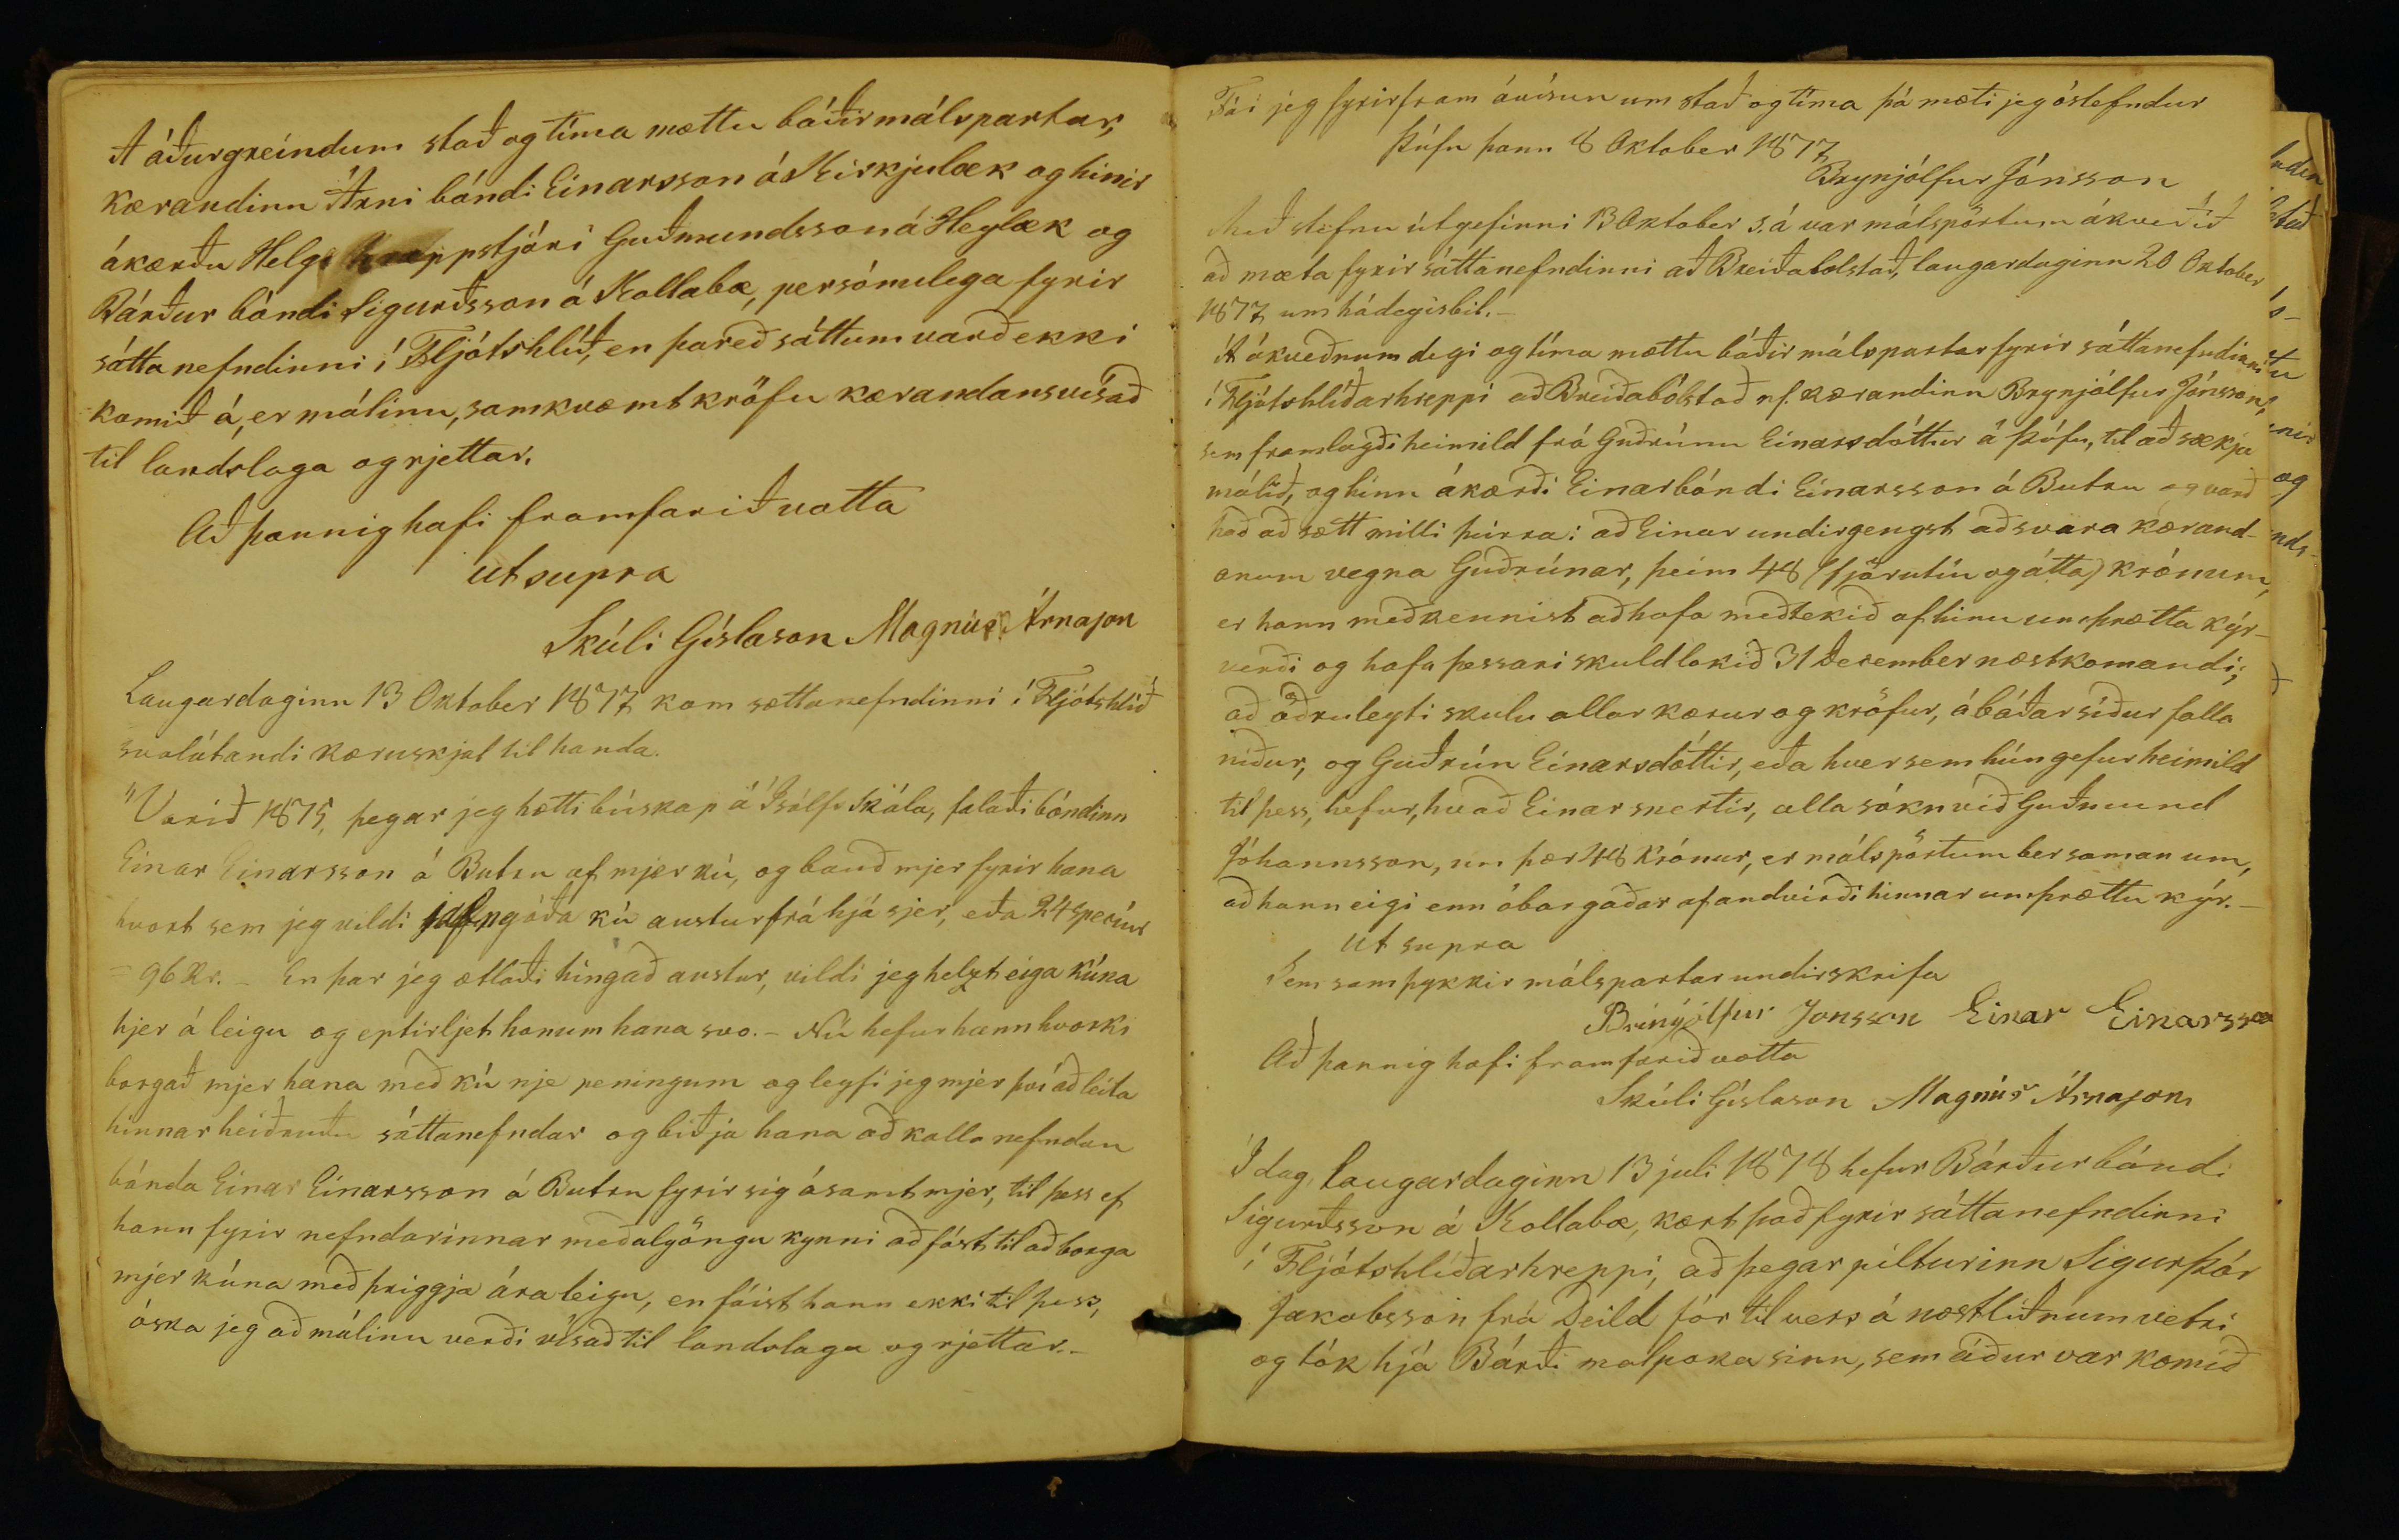 Á áðurgreindum stað og tíma mættu báðir málspartar,
kærandinn Árni bóndi Einarsson á Kirkjulæk og hinir
ákærðu Helgi hreppstjóri Guðmundsson á Heylæk og
Bárður bóndi Sigurðsson á Kollabæ, persónulega fyrir
sáttanefndinni í Fljótshlíð, en þareð sáttum varð ekki
komið á, er málinu, samkvæmt kröfu kærandans vísað
til landslaga og rjettar.
Að þannig hafi framfarið votta
ut supra
Skúli Gíslason Magnús Árnason
Laugardaginn 13 Oktober 1877 kom sættanefndinni í Fljótshlíð
svolátandi kæruskjal til handa.
"Vorið 1875, þegar jeg hætti búskap á Ísólfsskála, falaði bóndinn
Einar Einarsson á Butru af mjer kú, og bauð mjer fyrir hana
hvort sem jeg vildi jafngóða kú austur frá hjá sjer, eða 24 speciur
= 96 Kr. - En þar jeg ætlaði hingað austur, vildi jeg helzt eiga kúna
hjer á leigu og eptirljet honum hana svo. - Nú hefur hann hvorki
borgað mjer hana með kú nje peningum og leyfi jeg mjer því að leita
hinnar heiðruðu sáttanefndar og biðja hana að kalla nefndan
bónda Einar Einarsson á Butru fyrir sig ásamt mjer, til þess ef
hann fyrir nefndarinnar meðalgöngu kynni að fást til að borga
mjer kúna með þriggja ára leigu, en fáist hann ekki til þess,
óska jeg að málinu verði vísað til landslaga og rjettar. -
Fái jeg fyrirfram ávísun um stað og tíma þá mæti jeg óstefndur
Þúfu þann 8 Oktober 1877
Brynjólfur Jónsson
Með stefnu útgefinni 13 Oktober s. á var málspörtum ákveðið
að mæta fyrir sáttanefndinni að Breiðabolstað, laugardaginn 20 Oktober
1877 um hádegisbil. -
Á ákveðnum degi og tíma mættu báðir málspartar fyrir sáttanefndinni
í Fljótshlíðarhreppi að Breiðabólstað nf. kærandinn Brynjólfur Jónsson,
sem framlagði heimild frá Guðrúnu Einarsdóttur á Þúfu, til að sækja
málið, og hinn ákærði Einar bóndi Einarsson á Butru og varð
það að sætt milli þeirra: að Einar undirgengst að svara kærand-
anum vegna Guðrúnar, þeim 48 (fjörutíu og átta) krónum,
er hann meðkennist að hafa meðtekið af hinu umþrætta kýr-
verði og hafa þessari skuld lokið 31 December næstkomandi;
að öðruleyti skulu allar kærur og kröfur, á báðar síður falla
niður, og Guðrún Einarsdóttir, eða hver sem hún gefur heimild
til þess, hefur, hvað Einar snertir, alla sókn við Guðmund
Jóhannsson, um þær 48 Krónur, er málspörtum ber saman um,
að hann eigi enn óborgaðar af andvirði hinnar umþrættu kýr. -
Ut supra
Sem samþykkir málspartar undirskrifa
Brinýólfur Jonsson Einar Einarsson
Að þannig hafi framfarið votta
Skúli Gíslason Magnús Árnason
Í dag, laugardaginn 13 juli 1878 hefur Bárður bóndi
Sigurðsson á Kollabæ, kært það fyrir sáttanefndinni
í Fljótshlíðarhreppi, að þegar pilturinn Sigurþór
Jakobsson frá Deild fór til vers á næstliðnum vetri
og tók hjá Bárði malpoka sinn, sem áður var komið